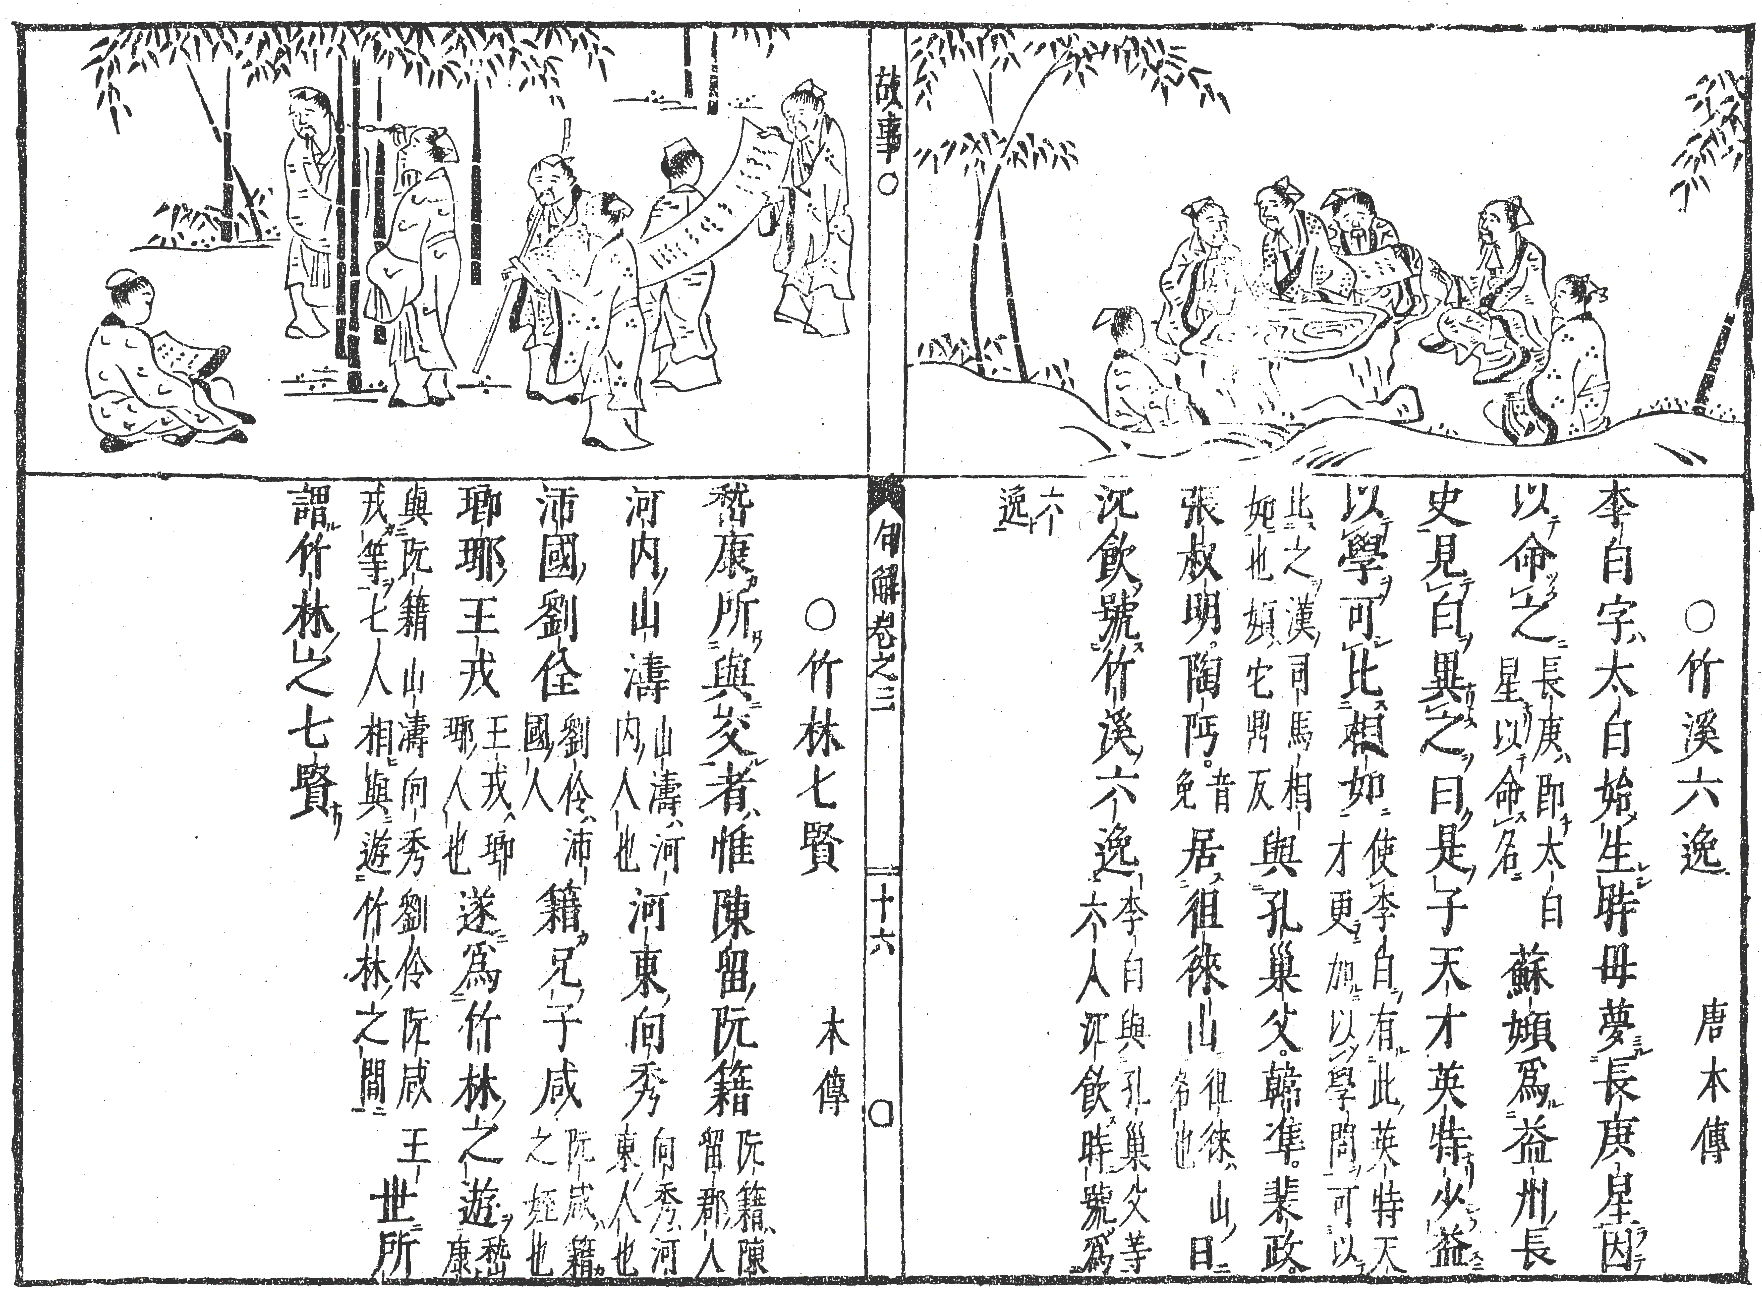 ○竹溪六逸 唐本傳
李白字太白始生時母夢長庚星因
以命之長庚即太白星以命名蘇頲爲益州長
史見白異之曰是子天才英特少益
以學可比相如使李白有此英特天才更加以學問可以
比之漢司馬相如也頲它鼎反與孔巢父韓準裴政
張叔明陶沔音免居徂徠山徂徠山名也日
沉飲號竹溪六逸李白與孔巢父等六人沉飲時號爲
六逸
故事○
句解卷之三
十六
○竹林七賢 本傳
嵇康所與交者惟陳留阮籍阮籍陳留郡人
河内山濤山濤河内人也河東向秀向秀河東人也
沛國劉伶劉伶沛國人籍兄子咸阮咸籍之姪也
瑯琊王戎王戎瑯琊人也遂爲竹林之遊嵇康
與阮籍山濤向秀劉伶阮咸王戎等七人相與遊竹林之間世所
謂竹林之七賢